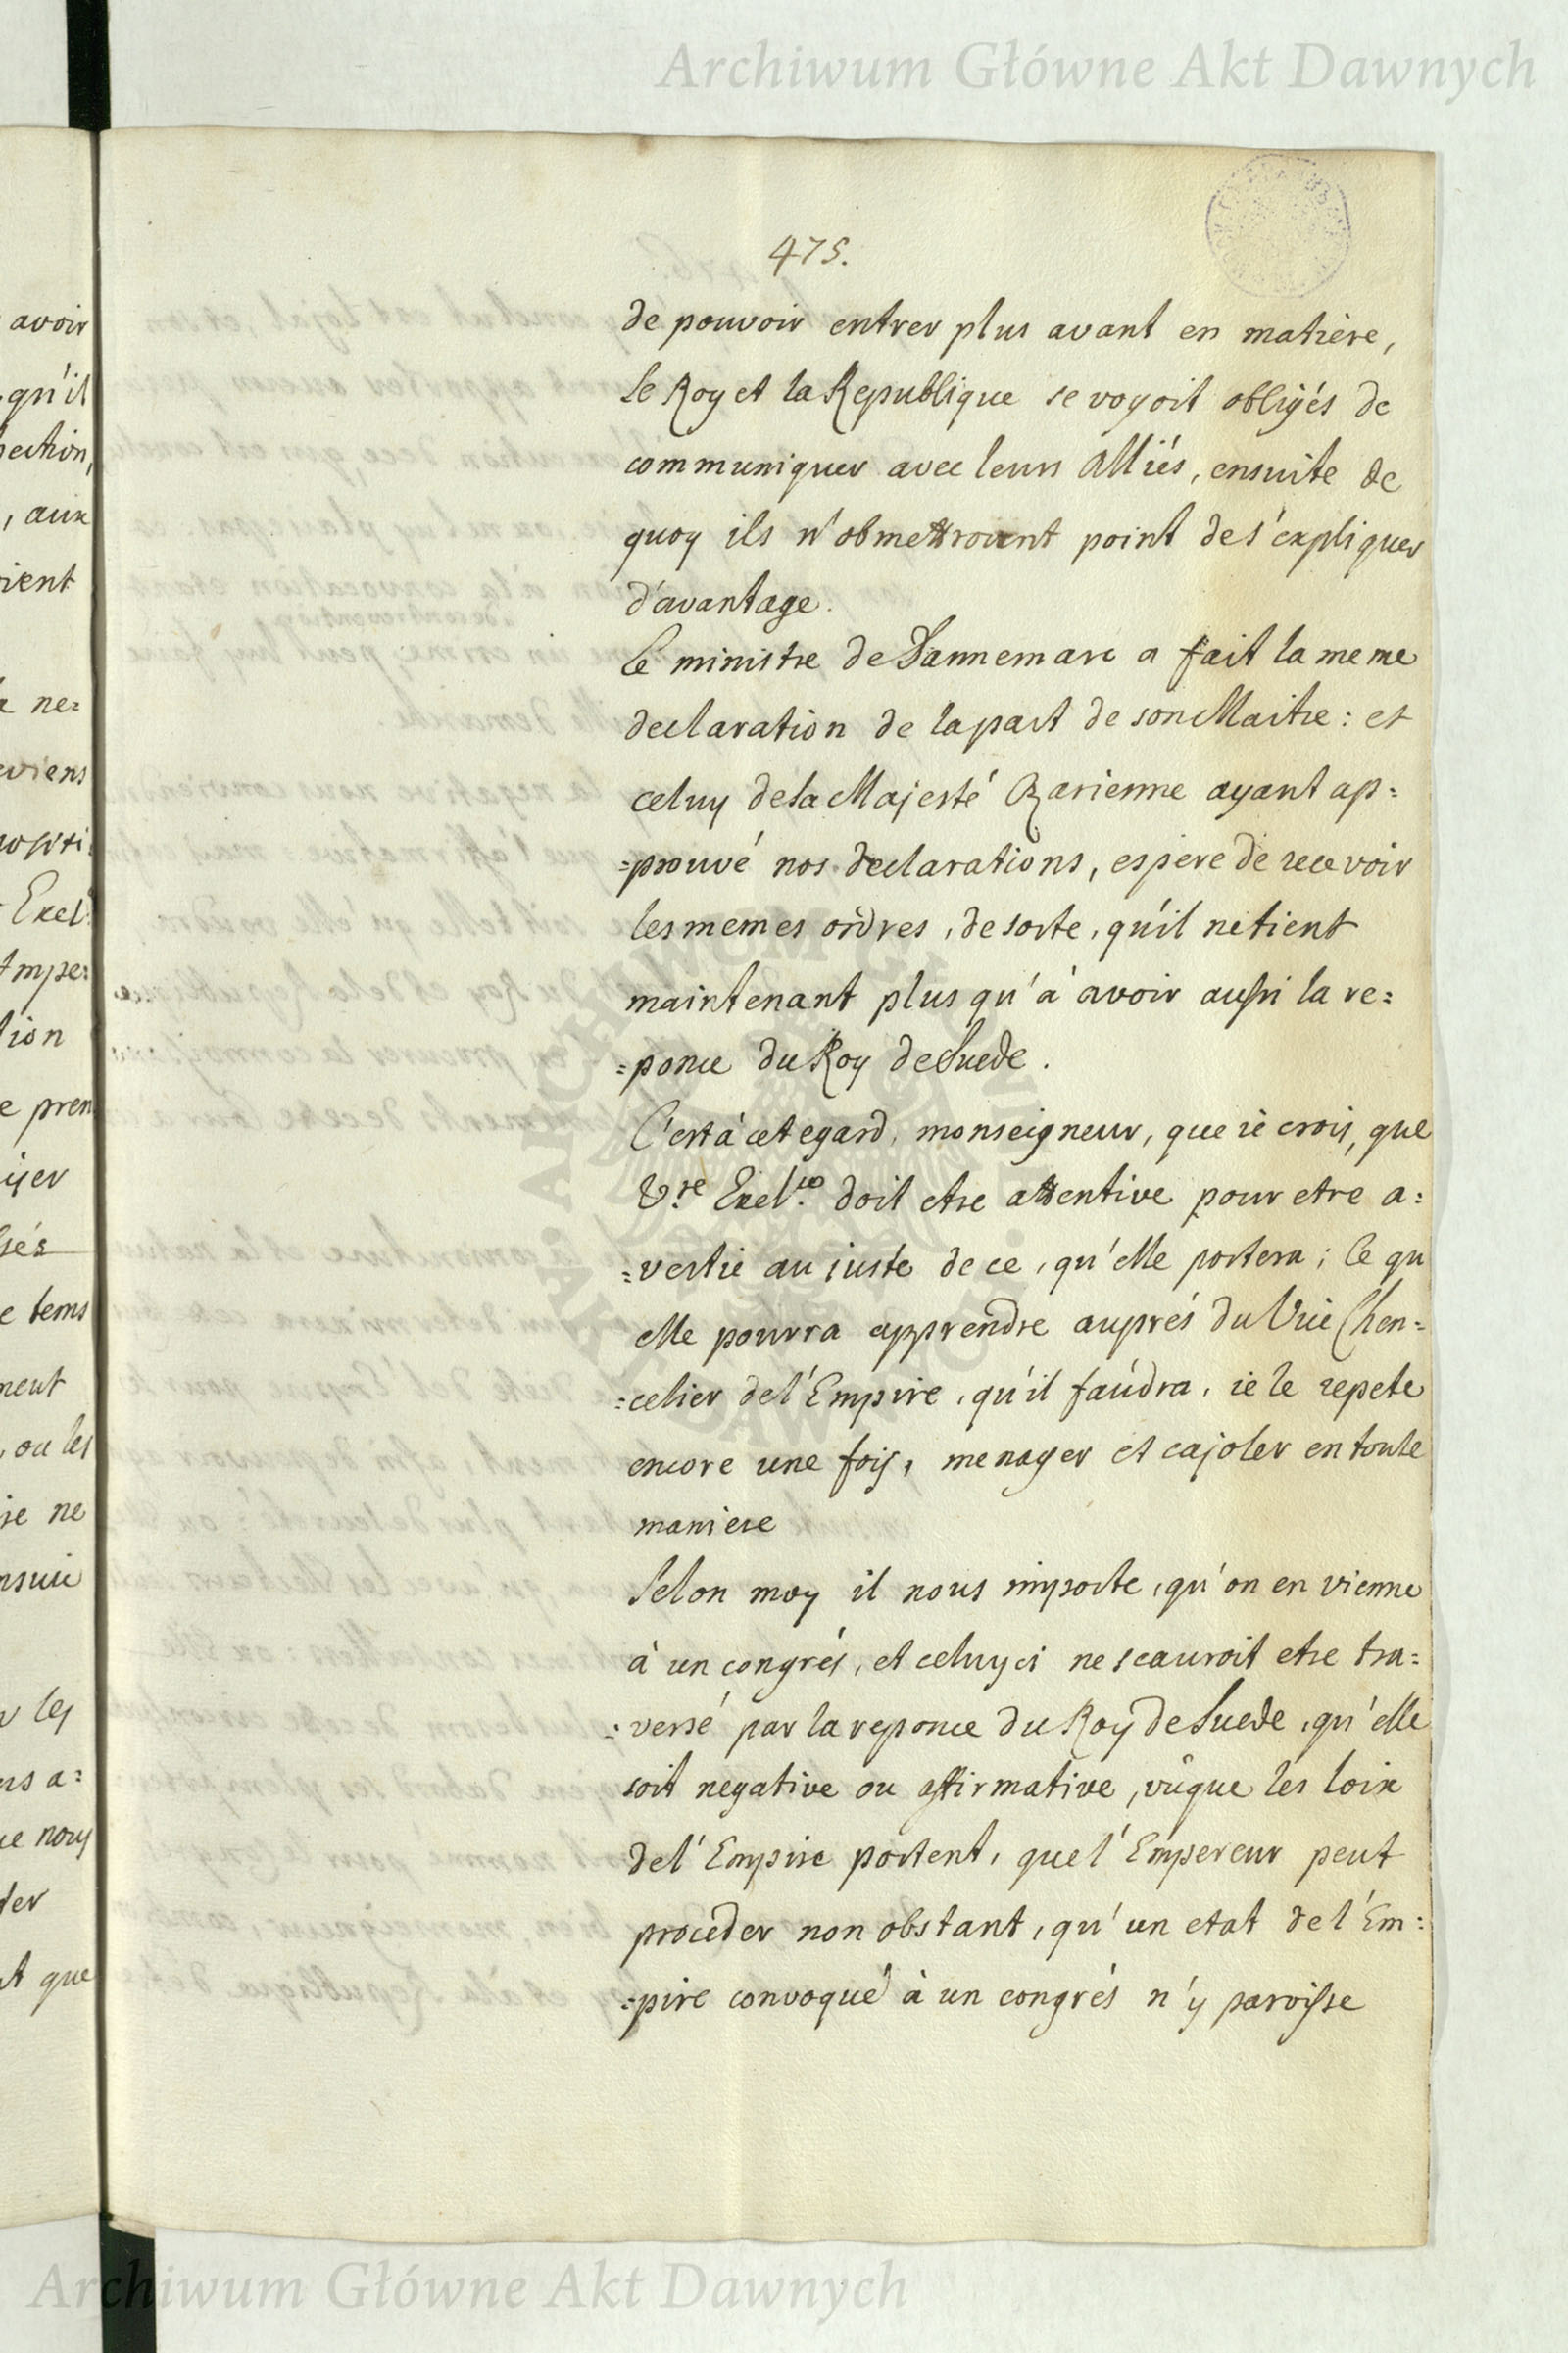 Archiwum Główne Akt Dawnych
475.
de pouvoir entrer plus avant en matière,
le Roy et la Republique se voyoit obligés de
communiquer avec leurs Alliés, ensuite de
quoy ils n'obmettroient point de s'expliquer
d'avantage.
Le ministre de Dannemarc a fait la meme
declaration de la part de son Maitre: et
celuy de sa Majesté Czarienne ayant ap=
=prouvé nos declarations, espere de recevoir
les memes ordres, de sorte, qu'il ne tient
maintenant plus qu'à avoir aussi la re=
=ponce du Roy de Suede.
C'est à cet egard, monseigneur, que ie crois, que
V.re Exel.ce doit etre attentive pour etre a=
=vertie au iuste de ce, qu'elle portera; Ce qu
elle pourra apprendre auprés du Vice Chen=
=celier de l'Empire, qu'il faudra, ie le repete
encore une fois, menager et cajoler en toute
maniere
Selon moy il nous importe, qu'on en vienne
à un congrés, et celuy ci ne scauroit etre tra=
=versé par la reponce du Roy de Suede, qu'elle
soit negative ou affirmative, vûque les loix
de l'Empire portent, que l'Empereur peut
proceder non obstant, qu'un etat de l'Em=
=pire convoqué à un congrés n'y paroisse
avoir
qu'il
, aux
ne=
Exel
tion
e pren
tems
, ou les
ne
les
a=
nous
que
Archiwum Główne Akt Dawnych